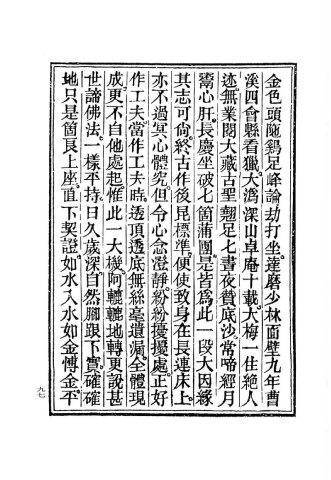 金色頭陁鷄足峰論劫打坐達磨少林面壁九年曹
溪四會縣看獵大潙深山卓庵十載大梅一住絶人
迹無業閱大藏古聖翹足七晝夜贊底沙常啼經月
鬻心肝長慶坐破七箇蒲團是皆爲此一段大因緣
其志可尙終古作後昆標準便使致身在長連床上
亦不過冥心體究但令心念澄靜紛紛擾擾處正好
作工夫當作工夫時透頂透底無絲毫遺漏全體現
成更不自他處起惟此一大機阿轆轆地轉更說甚
世諦佛法一樣平持日久歲深自然腳跟下實確確
地只是箇良上座直下契證如水入水如金博金平
九七